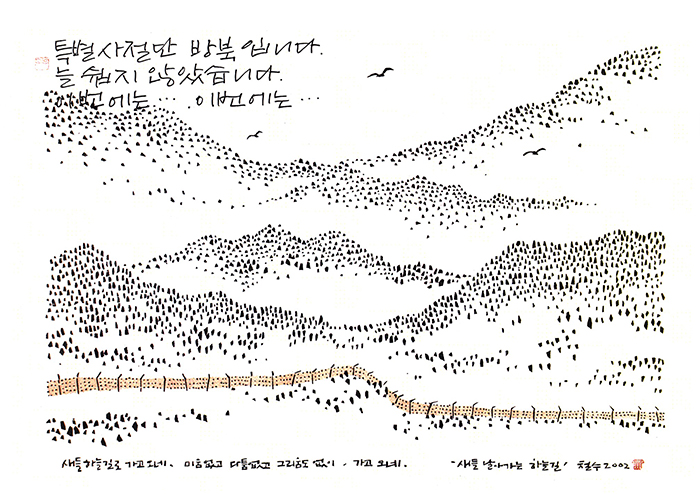 특별사절단 방북입니다.
늘 쉽지 않았습니다.
이번에는… 이번에는…
새들 하늘길로 가고 오네. 미움없고 다툼없고 그리움도 없이, 가고 오네. -'새들 날아가는 하늘길' 철수 2002